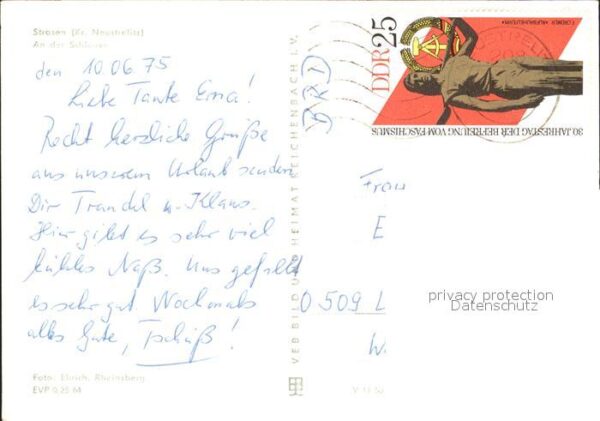 Strasen (Kr. Neustrelitz)
An der Schleuse
den 10.06.75
Liebe Tante Erna!
Recht herzliche Grüße
aus unserem Urlaub senden
Dir Traudel u. Klaus.
Hier gibt es sehr viel
kühles Naß. Uns gefällt
es sehr gut. Nochmals
alles Gute, Tschüß!
Foto: Rheinsberg
EVP 0 25 64
VEB BILD UND HEIMAT REICHENBACH I. V.
BRD
DDR 25
30. JAHRESTAG DER BEFREIUNG VOM FASCHISMUS
Frau
E
0509 L
W.
privacy protection
Datenschutz